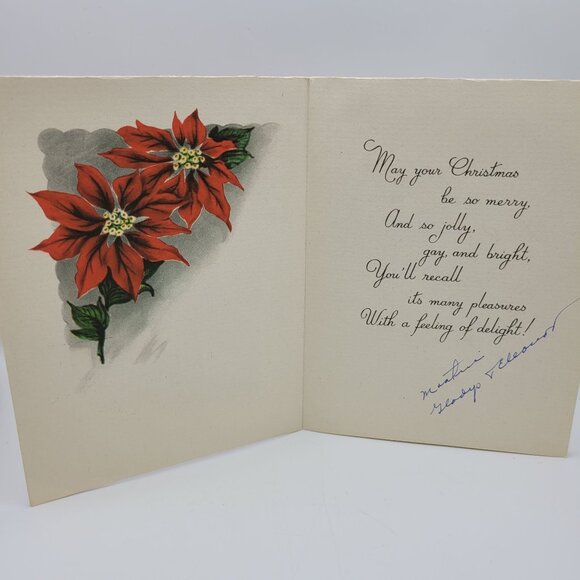 May your Christmas
be so merry,
And so jolly,
gay and bright,
You'll recall
its many pleasures
With a feeling of delight!
Gladys & Eleanor